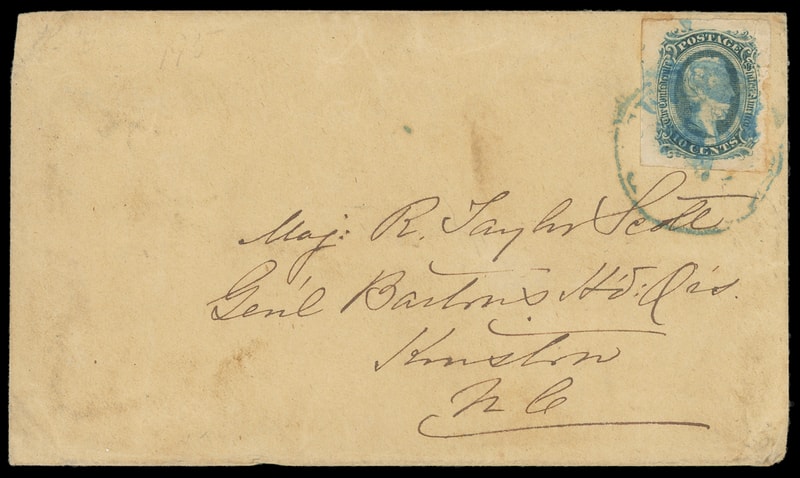 175
POSTAGE
The Confederate States of America
10 CENTS
Maj: R. Taylor Scott
Gen'l Barton's Hd: Qrs.
Kinston
N C